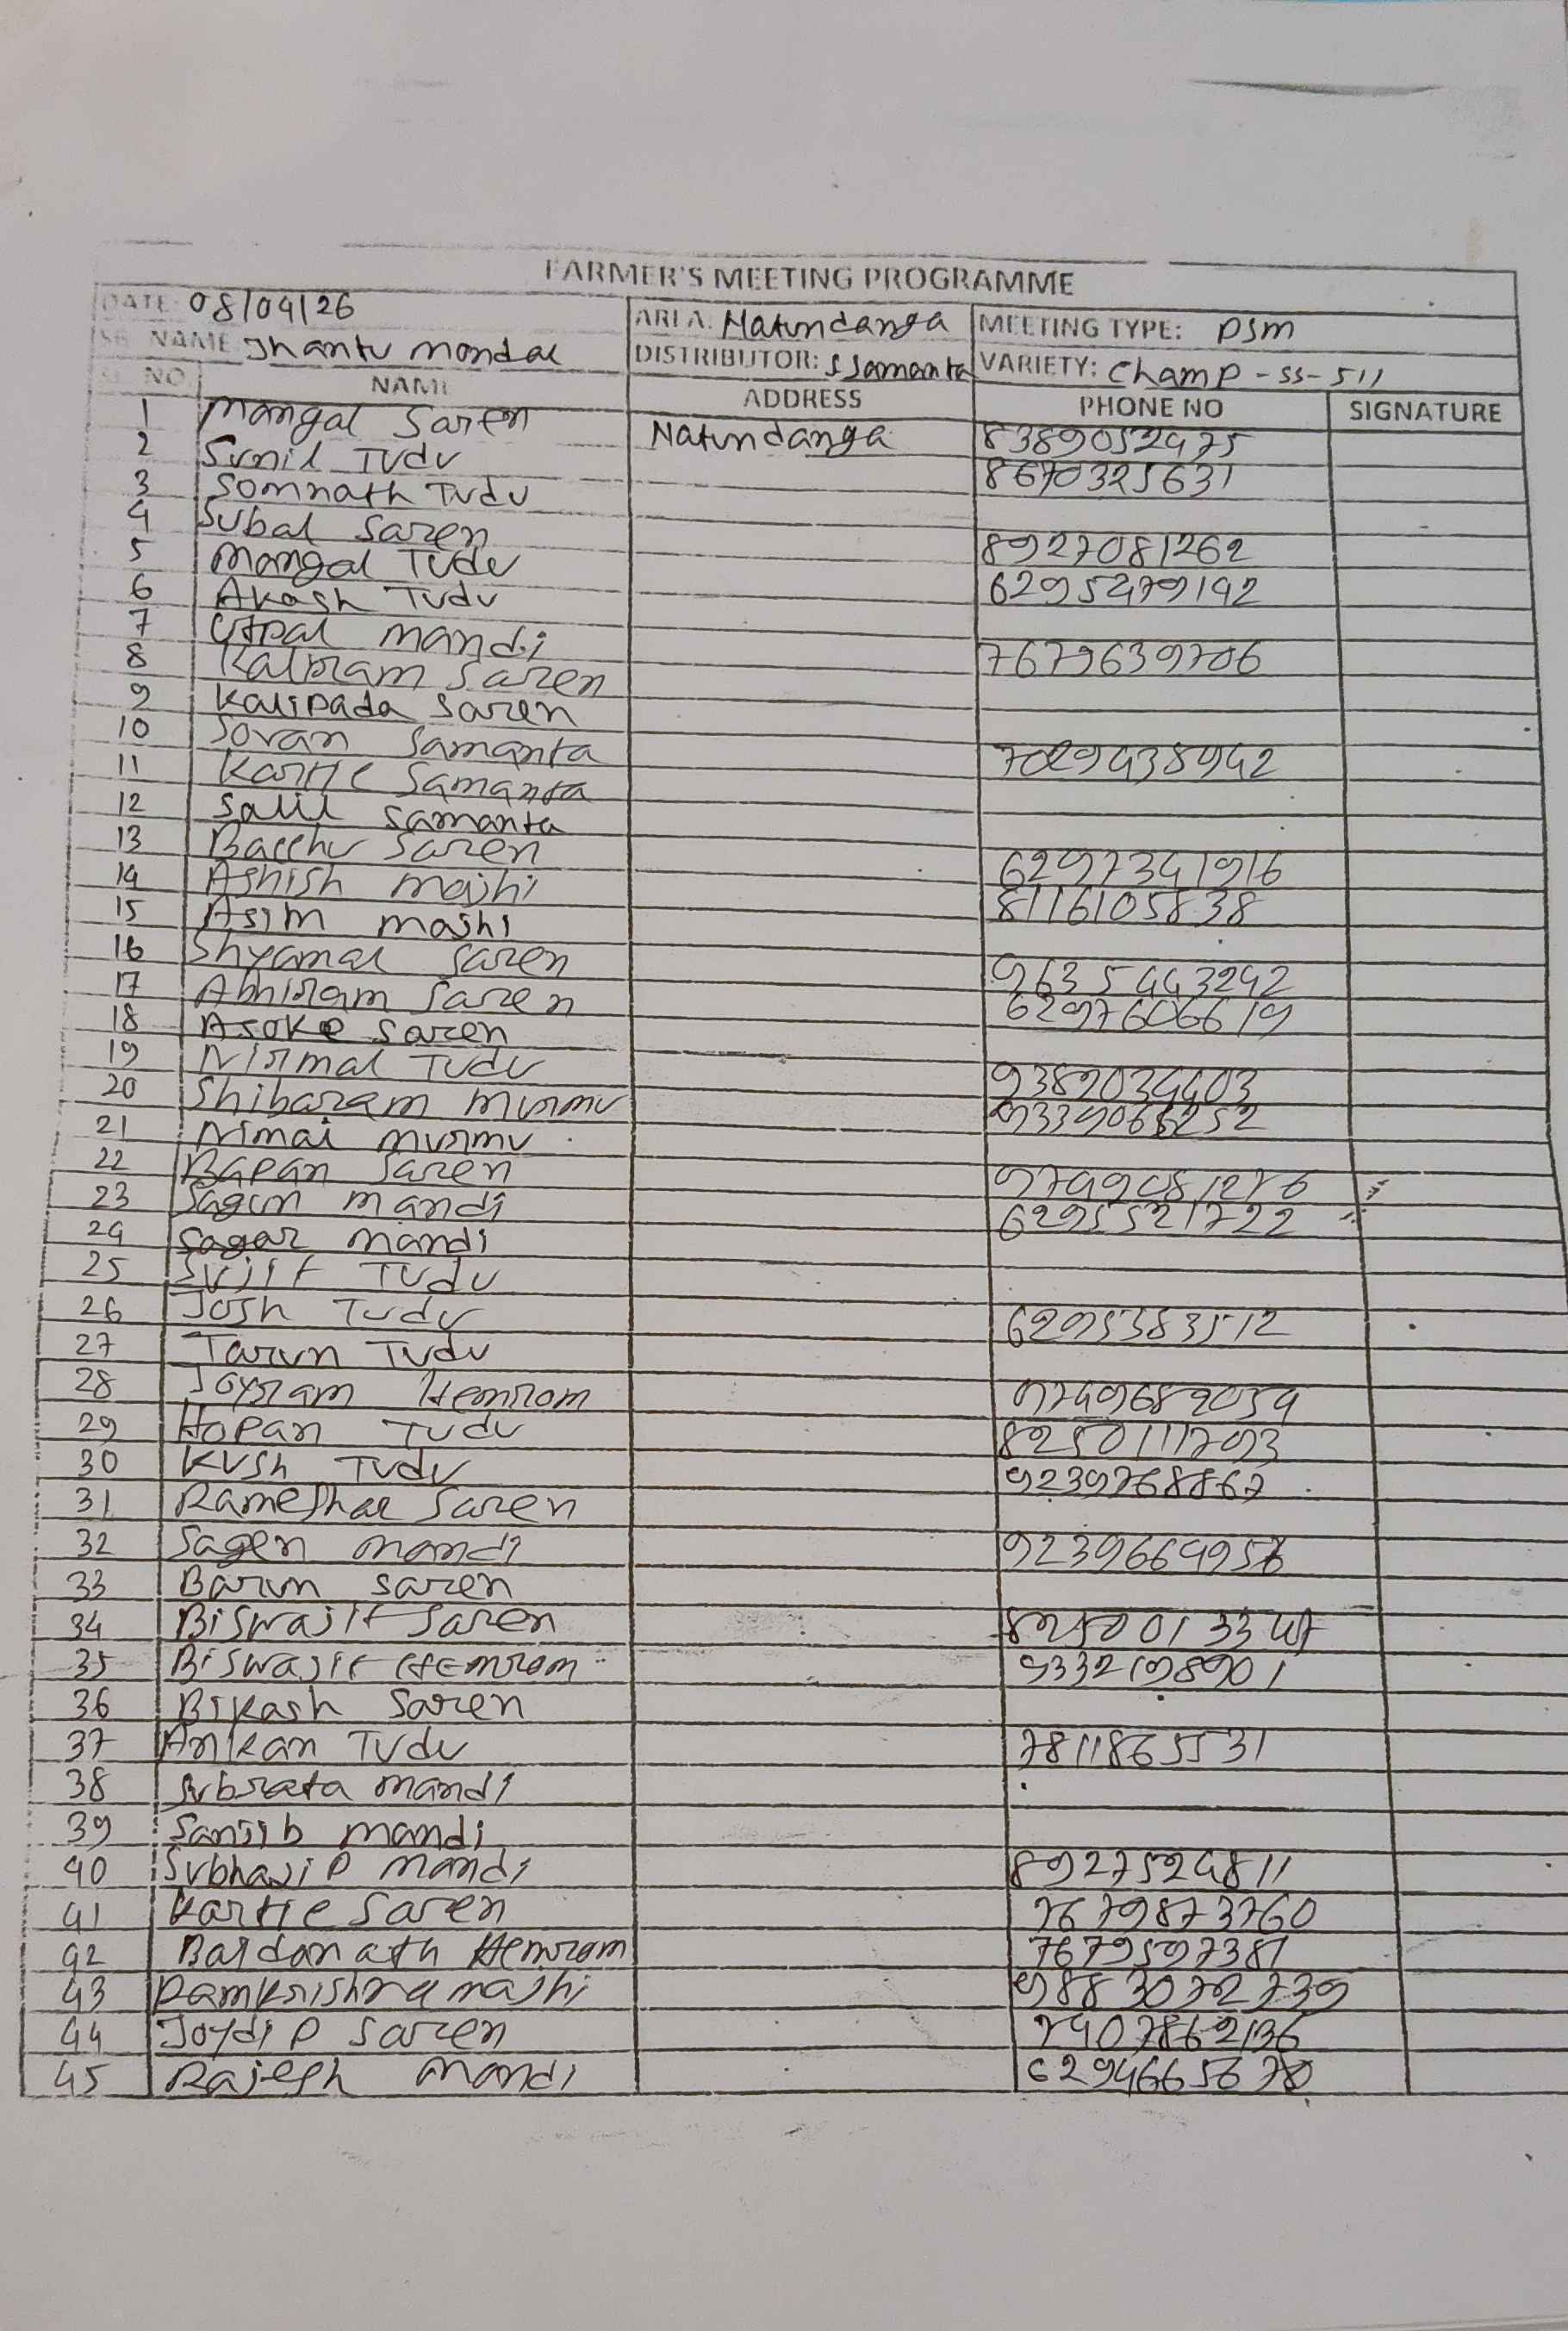 FARMER'S MEETING PROGRAMME
DATE: 08/04/26 AREA: Natundanga MEETING TYPE: PSM
SR. NAME Jhantu Mondal DISTRIBUTOR: S Samanta VARIETY: Champ-SS-511
SL. NO. NAME ADDRESS PHONE NO SIGNATURE
1 Mangal Saren Natundanga 8389052475
2 Sunil Tudu 8670325631
3 Somnath Tudu
4 Subal Saren 8927081262
5 Mangal Tudu 6295479142
6 Akash Tudu
7 Utpal Mandi 7679639706
8 Kalram Saren
9 Kalipada Saren
10 Sovan Samanta 7029438942
11 Kartic Samanta
12 Salil Samanta
13 Bacchu Saren 6297341916
14 Ashish Majhi 8116105838
15 Asim Majhi
16 Shyamal Saren 9635443242
17 Abhiram Saren 6297606619
18 Asoke Saren
19 Nirmal Tudu 9389034403
20 Shibaram Murmu
21 Nimai Murmu
22 Bapan Saren
23 Sagun Mandi 6295521722
24 Sagar Mandi
25 Sujit Tudu
26 Josh Tudu 6295383512
27 Tarun Tudu
28 Joyram Hemrom 9749682054
29 Hopan Tudu 8250111793
30 Kush Tudu 9239768867
31 Rameshar Saren
32 Sagen Mandi
33 Barun Saren
34 Biswajit Saren
35 Biswajit Hemrom 9332198901
36 Bikash Saren
37 Ankan Tudu 7811865531
38 Subrata Mandi
39 Sanjib Mandi
40 Subhajip Mandi 8927524811
41 Kartic Saren 7679873760
42 Baidanath Hemrom 7679597381
43 Ramkrishna Majhi 9883072739
44 Joydip Saren 7407862136
45 Rajesh Mandi 6294665670